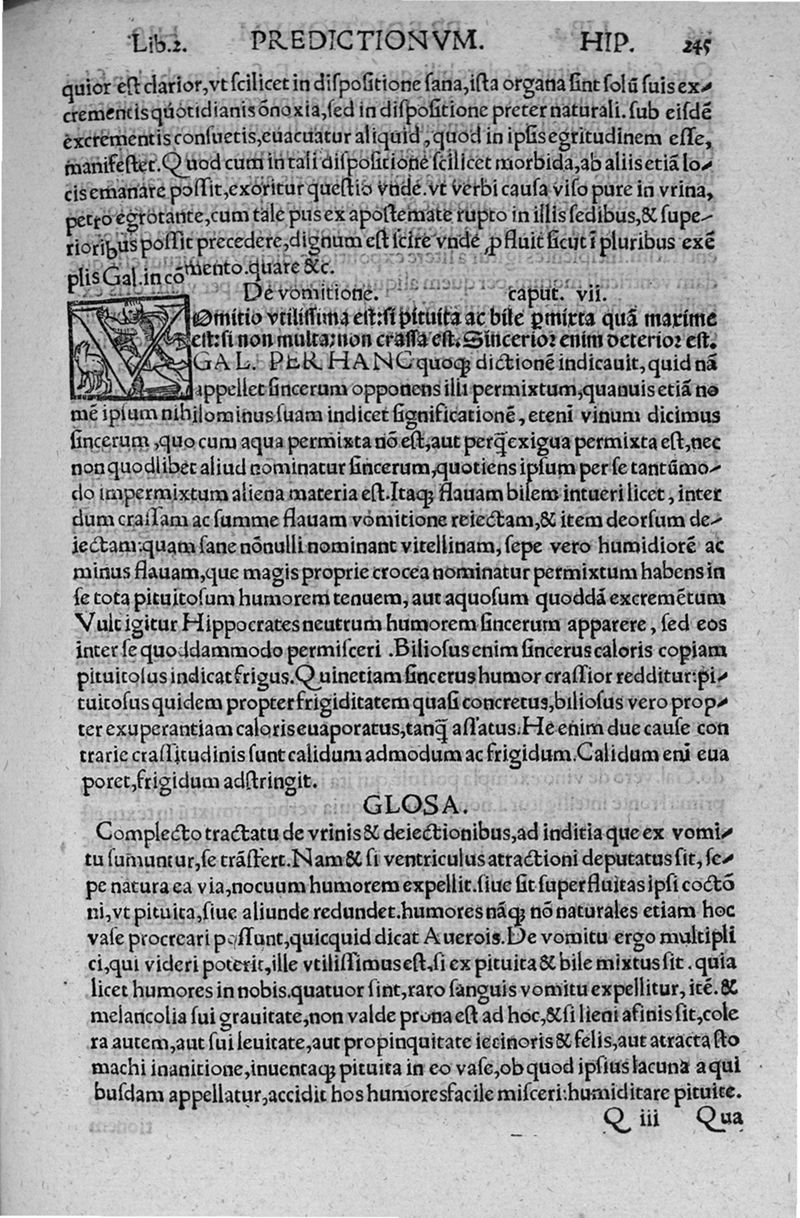 Lib.2. PREDICTIONVM. HIP. 245
quior est clarior,vt scilicet in dispositione sana,ista organa sint solũ suis ex-
crementis quotidianis õnoxia,sed in dispositione preter naturali.sub eisdẽ
excrementis consuetis,euacuatur aliquid,quod in ipsis egritudinem esse,
manifestet.Quod cum in tali dispositione scilicet morbida,ab aliis etiã lo-
cis emanare possit,exoritur questio vnde.vt verbi causa viso pure in vrina,
petro egrotante,cum tale pus ex apostemate rupto in illis sedibus,& supe-
rioribus possit precedere,dignum est scire vnde ꝓfluit sicut ĩ pluribus exẽ
plis Gal.in cõmento.quare &c.
De vomitione. caput. vii.
VOmitio vtilissima est:si pituita ac bile ꝑmixta quã maxime
est:si non multa:non crassa est.Sincerior enim deterior est.
GAL. PER HANC quoqꝫ dictionẽ indicauit, quid nã
appellet sincerum opponens illi permixtum,quanuis etiã no
mẽ ipsum nihilominus suam indicet significationẽ, etenĩ vinum dicimus
sincerum ,quo cum aqua permixta nõ est,aut perq̃ exigua permixta est,nec
non quodlibet aliud nominatur sincerum,quotiens ipsum per se tantũmo-
do impermixtum aliena materia est.Itaqꝫ flauam bilem intueri licet, inter
dum crassam ac summe flauam vomitione reiectam,& item deorsum de-
iectam:quam sane nõnulli nominant vitellinam, sepe vero humidiorẽ ac
minus flauam,que magis proprie crocea nominatur permixtum habens in
se tota pituitosum humorem tenuem, aut aquosum quoddã excremẽtum
Vult igitur Hippocrates neutrum humorem sincerum apparere, sed eos
inter se quoddammodo permisceri .Biliosus enim sincerus caloris copiam
pituitosus indicat frigus.Quinetiam sincerus humor crassior redditur:pi-
tuitosus quidem propter frigiditatem quasi concretus,biliosus vero prop-
ter exuperantiam caloris euaporatus,tanq̃ assatus.He enim due cause con
trarie crassitudinis sunt calidum admodum ac frigidum.Calidum enĩ eua
poret,frigidum adstringit.
GLOSA.
Complecto tractatu de vrinis & deiectionibus,ad inditia que ex vomi-
tu sumuntur,se trãsfert.Nam & si ventriculus atractioni deputatus sit, se-
pe natura ea via,nocuum humorem expellit.siue sit superfluitas ipsi coctõ
ni,vt pituita,siue aliunde redundet.humores nãqꝫ nõ naturales etiam hoc
vase procreari possunt,quicquid dicat Auerois.De vomitu ergo multipli
ci,qui videri poterit,ille vtilissimus est,si ex pituita & bile mixtus sit . quia
licet humores in nobis.quatuor sint,raro sanguis vomitu expellitur, itẽ.&
melancolia sui grauitate,non valde prona est ad hoc,& si lieni afinis sit,cole
ra autem,aut sui leuitate,aut propinquitate iecinoris & felis,aut atracta sto
machi inanitione,inuentaqꝫ pituita in eo vase,ob quod ipsius lacuna a qui
busdam appellatur,accidit hos humores facile misceri:humiditate pituite.
Q iii Qua